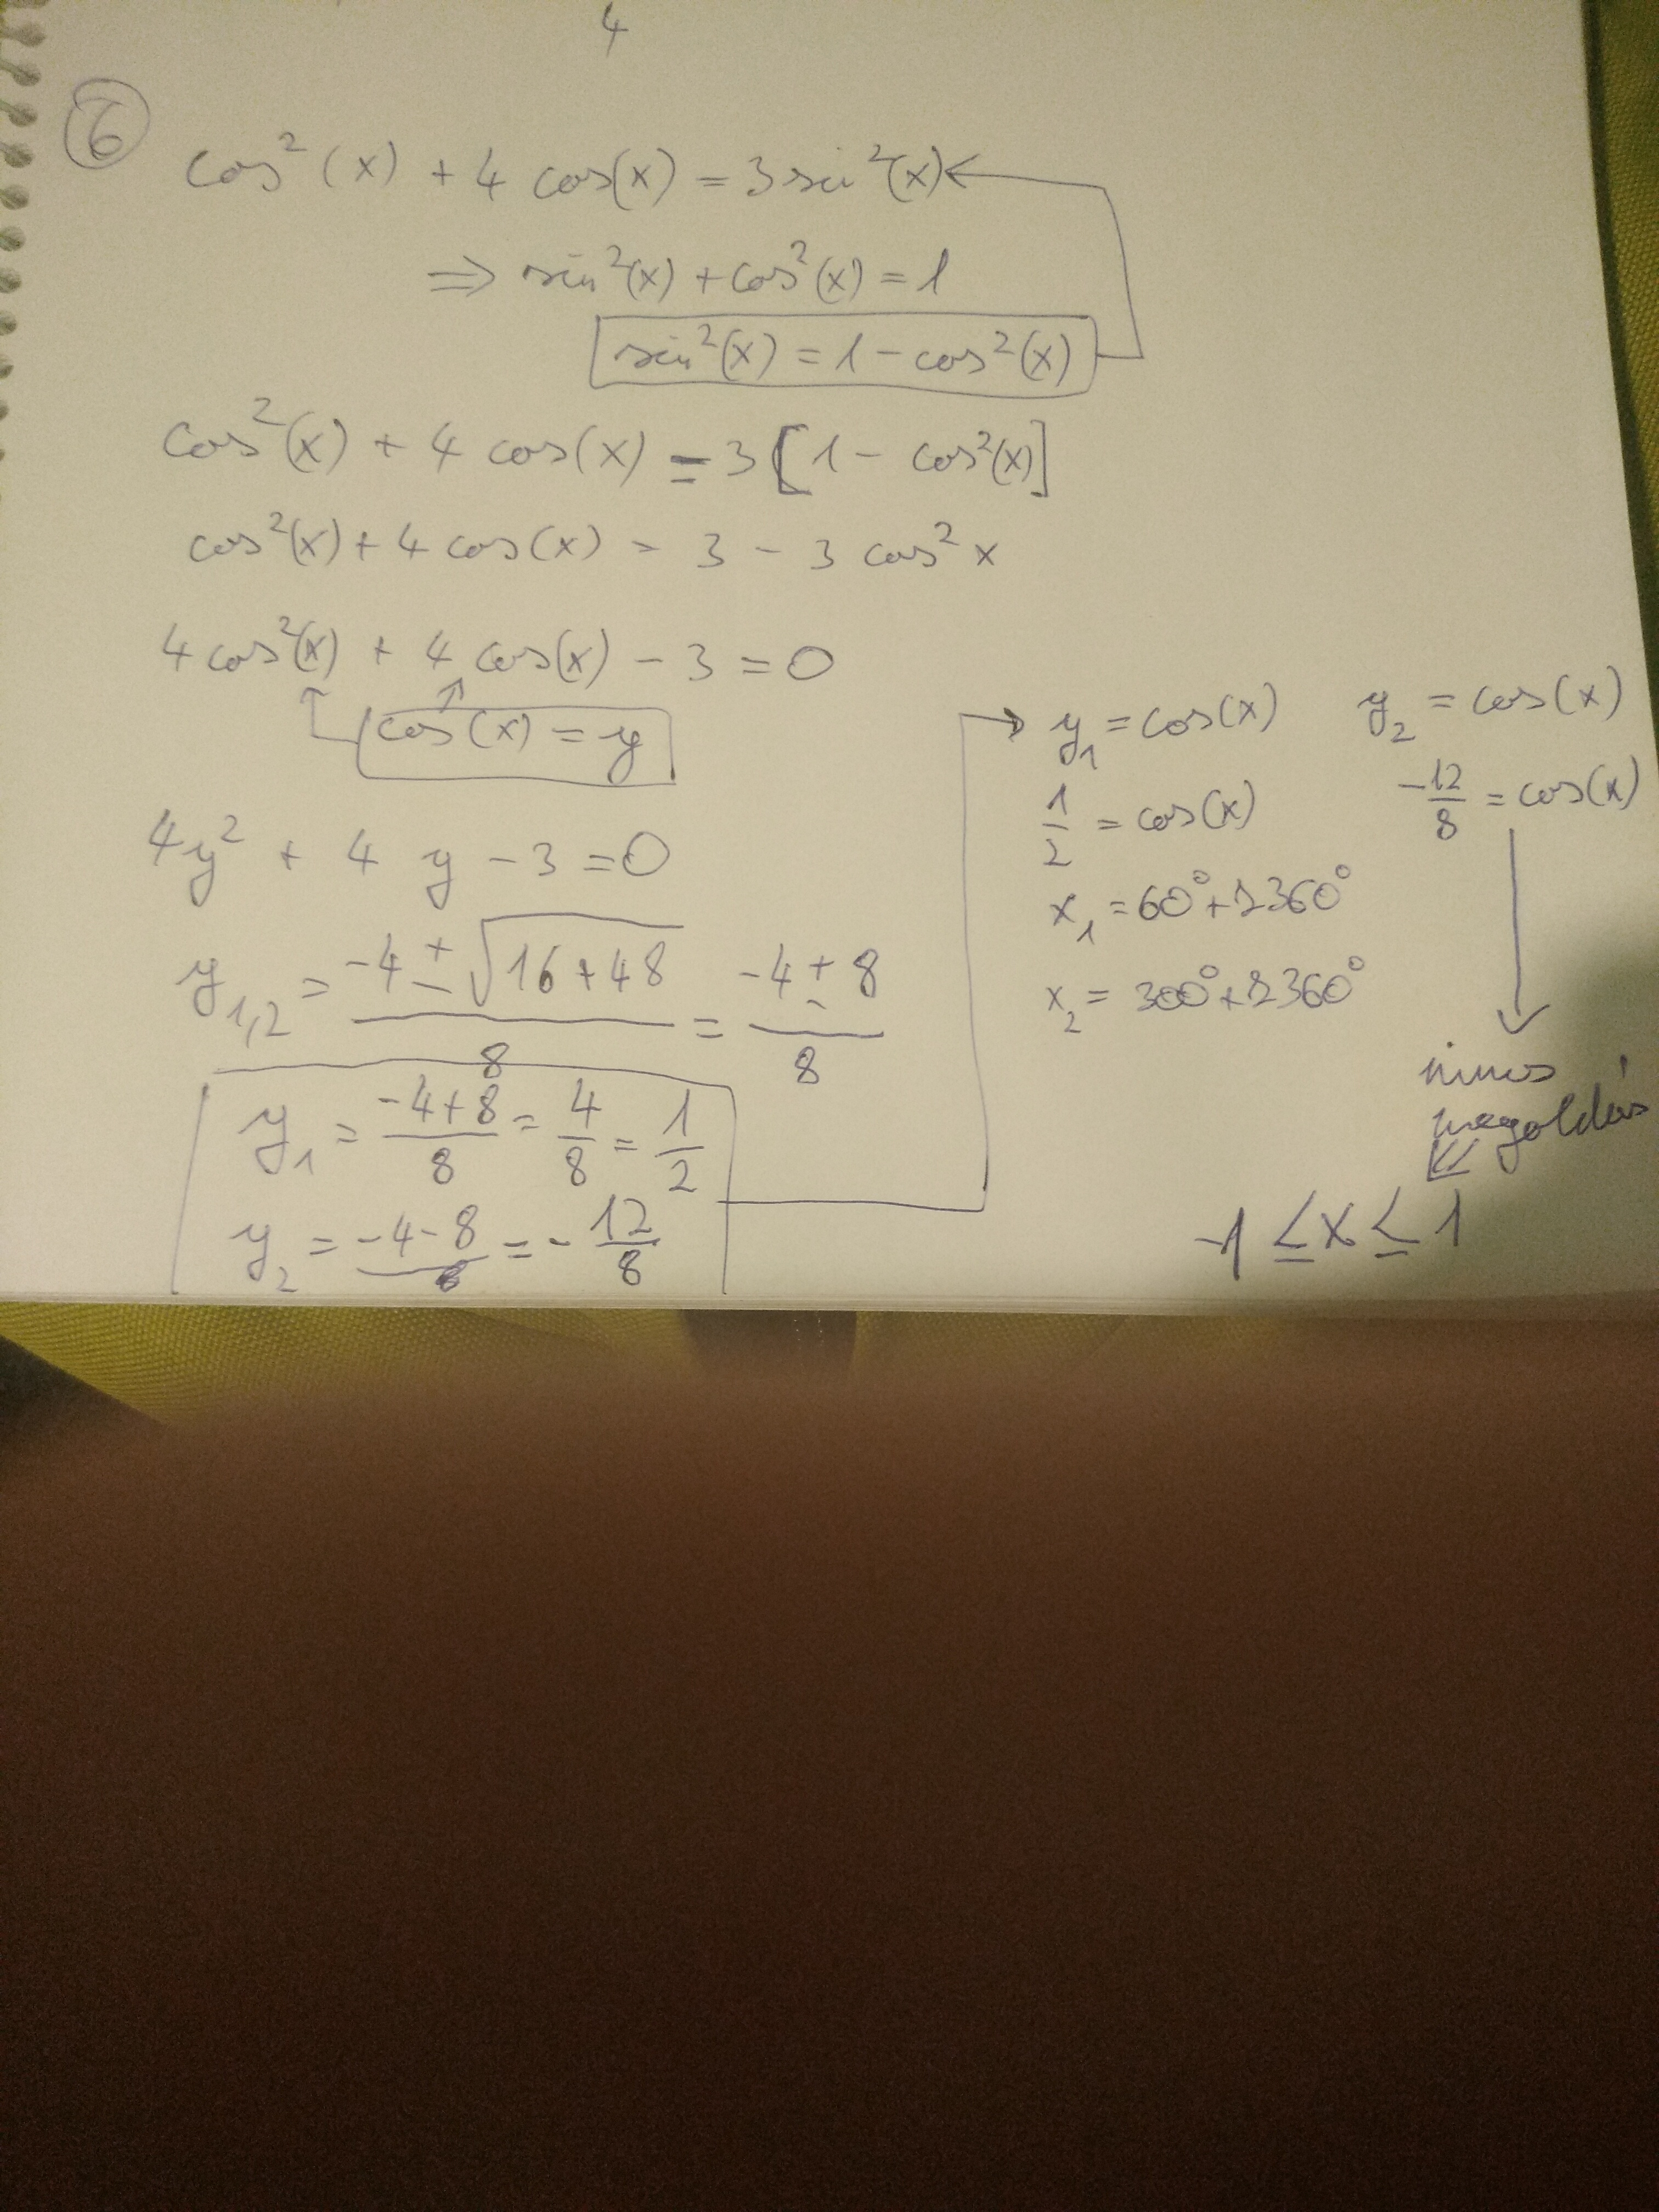 4
6
cos²(x) + 4 cos(x) = 3 sin²(x)
⇒ sin²(x) + cos²(x) = 1
sin²(x) = 1 - cos²(x)
cos²(x) + 4 cos(x) = 3[1 - cos²(x)]
cos²(x) + 4 cos(x) = 3 - 3 cos² x
4cos²(x) + 4 cos(x) - 3 = 0
cos(x) = y
4y² + 4 y - 3 = 0
y₁,₂ = (-4 ± √(16+48))/8 = (-4 ± 8)/8
y₁ = (-4+8)/8 = 4/8 = 1/2
y₂ = (-4-8)/8 = - 12/8
→ y₁ = cos(x)
1/2 = cos(x)
x₁ = 60° + 360°
x₂ = 300° + 360°
y₂ = cos(x)
-12/8 = cos(x)
nincs
megoldás
-1 ≤ x ≤ 1